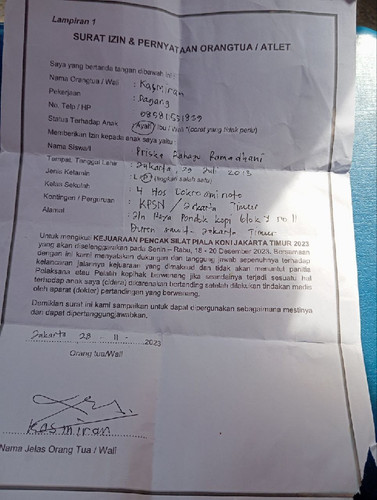 Lampiran 1
SURAT IZIN & PERNYATAAN ORANGTUA / ATLET
Saya yang bertanda tangan dibawah ini :
Nama Orangtua / Wali : Kasmiran
Pekerjaan : Dagang
No. Telp / HP
Status Terhadap Anak : Ayah / Ibu / Wali *(coret yang tidak perlu)
Memberikan Izin kepada anak saya yaitu :
Nama Siswa/i : Priska Rahayu Ramadhani
Tempat, Tanggal Lahir : Jakarta, 29 Jul 2013
Jenis Kelamin : L / P (lingkari salah satu)
Kelas Sekolah : 4 Hos Cokroaminoto
Kontingen / Perguruan : KPSN / Jakarta Timur
Alamat : Jln Raya Pondok kopi blok 9 no 11
Duren sawit Jakarta Timur
Untuk mengikuti KEJUARAAN PENCAK SILAT PIALA KONI JAKARTA TIMUR 2023
yang akan diselenggarakan pada Senin - Rabu, 18 - 20 Desember 2023. Bersamaan
dengan ini kami menyatakan dukungan dan tanggung jawab sepenuhnya terhadap
kelancaran jalannya kejuaraan yang dimaksud dan tidak akan menuntut panitia
Pelaksana atau Pelatih kepihak berwenang jika seandainya terjadi sesuatu hal
terhadap anak saya (cidera) dikarenakan bertanding setelah dilakukan tindakan medis
oleh aparat (dokter) pertandingan yang berwenang.
Demikian surat ini kami sampaikan untuk dapat dipergunakan sebagaimana mestinya
dan dapat dipertanggungjawabkan.
Jakarta 28 - 11 - 2023
Orang tua/Wali
Kasmiran
Nama Jelas Orang Tua / Wali